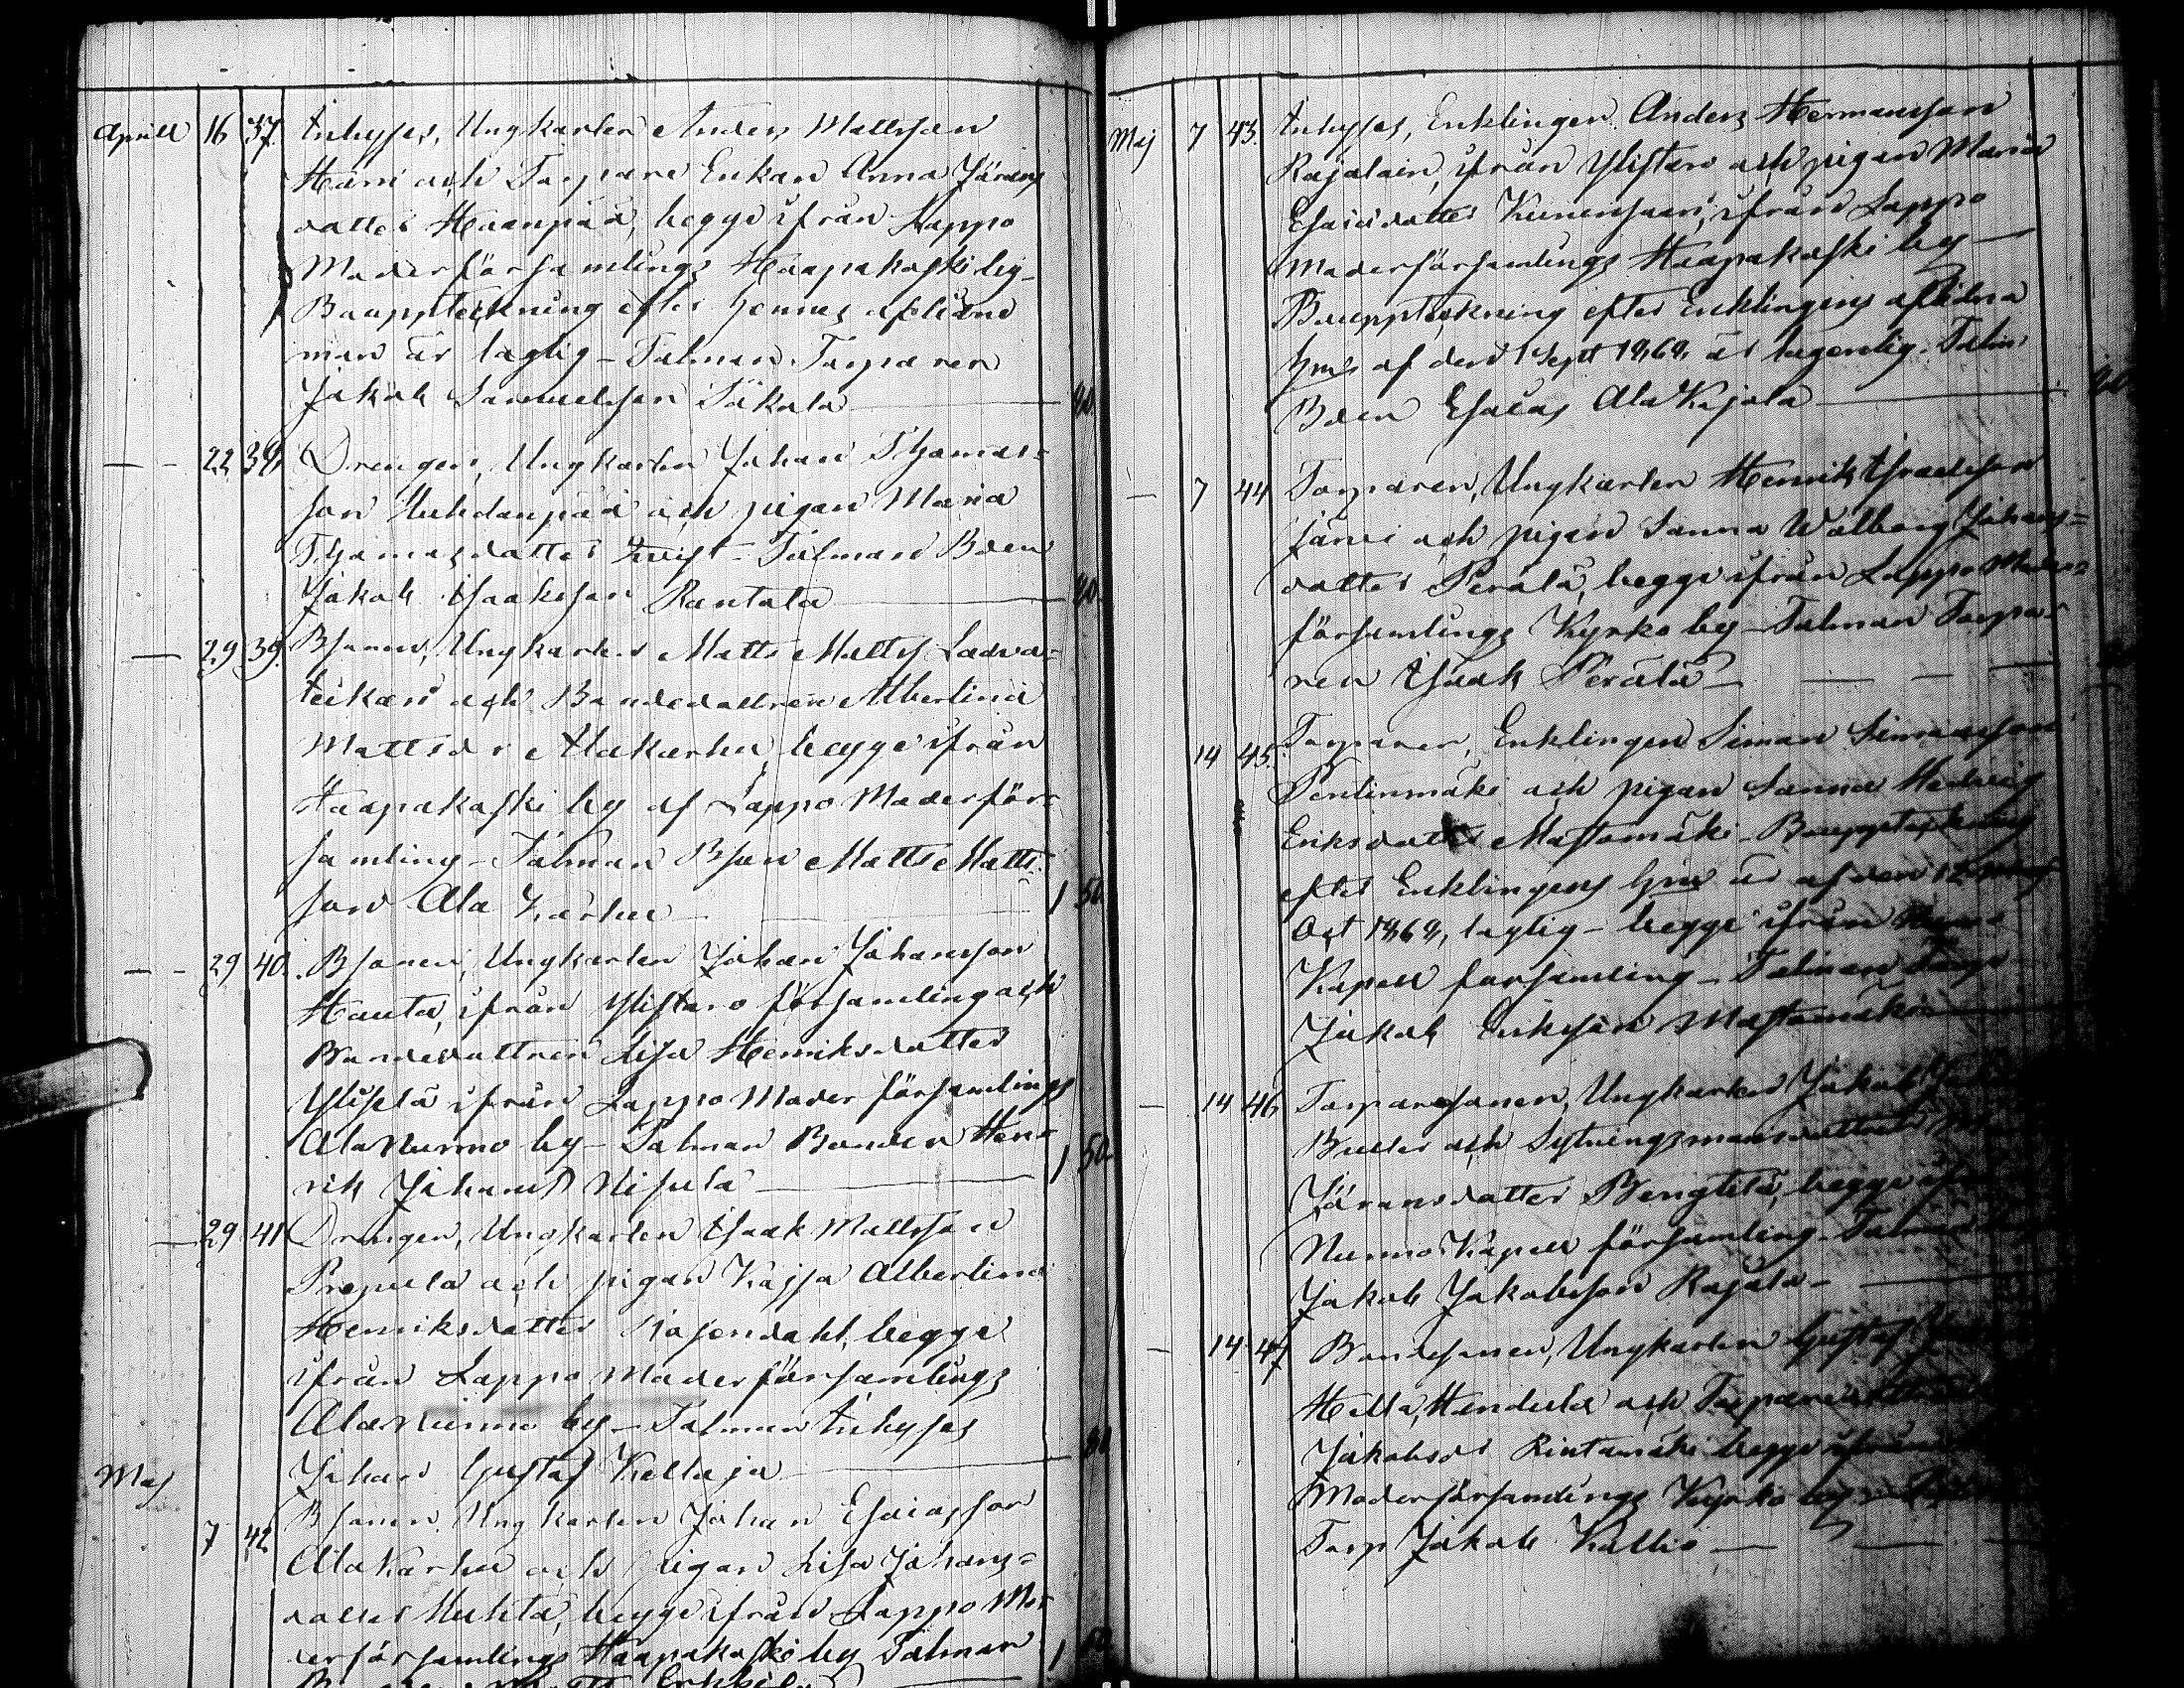 Aprill 16 37. Inhyses, Ungkarlen Anders Mattsson
Harri och Torpare Enkan Anna Jörans
dotter Haanpää, begge ifrån Lappo
Moderförsamlings Haapakoski by –
Bouppteckning efter hennes aflidne
man är laglig – Talman Torparen
Jakob Samuelsson Sökala — 80.
— 22 38 Drengen, Ungkarlen Johan Thomas=
son Huhdanpää och pigan Maria
Thomasdotter – Talman Bden
Jakob Isaaksson Rantala — 80.
— 29 39. Bsonen, Ungkarlen Matts Matts. Ladva=
och Bondedottren Albertina
Mattsdr Alakarhu, begge ifrån
Haapakoski by af Lappo Moderför=
samling – Talman Bson Matts Matts
son Ala Karhu — 1 50
— 29 40. Bsonen, Ungkarlen Johan Johansson
Hauta, ifrån Ylistaro församling och
Bondedottren Lisa Henriksdotter
ifrån Lappo Moder församlings
Ala Nurmo by – Talman Bonden Hen=
rik Johans Nisula — 1 50.
— 29 41 Drengen, Ungkarlen Isaak Mattsson
Prepula och pigan Kajsa Albertina
Henriksdotter Rosendahl, begge
ifrån Lappo Moderförsamlings
Ala Nurmo by – Talman Inhyses
Johan Gustaf Kellaja — 80
Maj
7 42 Bsonen Ungkarlen Johan Esaiasson
Ala Karhu och pigan Lisa Johans=
dotter Huhta, begge ifrån Lappo Mo=
derförsamlings Haapakoski by Talman 1 50
Maj 7 43. Inhyses, Enklingen Anders Hermansson
ifrån Ylistaro och pigan Maria
Esaiædotter ifrån Lappo
Moderförsamlings Haapakoski by —
Bouppteckning efter Enklingens aflidna
hru af den 1 Sept 1868, är lagenlig. Talm:
Bden Esaias Ala Kojola — 80
— 7 44 Torparen, Ungkarlen Henrik Israelsson
Järvi och pigan Sanna Walborg Johans=
dotter Perälä, begge ifrån Lappo Moder=
församlings Kyrko by – Talman Torpa=
ren Isaak Perälä —
14 45. Torparen, Enklingen Simon Simonsson
Penlinmäki och pigan Sanna Hedvig
Eriksdotter Mastomäki – Bouppteckning
efter Enklingens hru är af den 12
Oct 1868, laglig – begge ifrån
Kapell församling – Talman Torp
Jakob Eriksson Mastomäki
— 14 46 Torparesonen, Ungkarlen Jakob
Buller och Sytningsmansdottren
Jöransdotter Bengtilä, begge
Nurmo Kapell församling – Talman
Jakob Jakobsson Rajala —
— 14 47 Bondesonen, Ungkarlen Gustaf
Hella, Handula och Torpare
Jakobsdr Rintamäki begge ifrån
Moderförsamlings Kyrko by –
Torp Jakob Kallio —